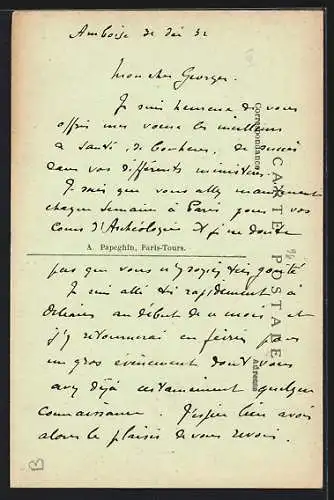 Amboise 31 Déc 32
Mon cher Georges.
Je suis heureux de vous
offrir mes voeux les meilleurs
de santé, de bonheur, de succès
dans vos différents ministères.
Je sais que vous allez maintenant
chaque semaine à Paris pour vos
Cours d'Archéologie et je ne doute
A. Papeghin, Paris-Tours.
pas que vous n'y soyiez très goûté
Je suis allé très rapidement à
Orléans au début de ce mois et
j'y retournerai en février pour
un gros évènement dont vous
avez déjà certainement quelque
connaissance. J'espère bien avoir
alors le plaisir de vous revoir.
CARTE POSTALE
Correspondance
Adresse
B